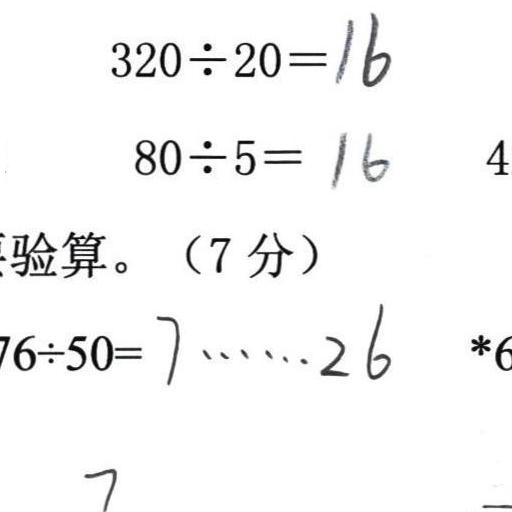 320÷20=16
80÷5=16 4
验算。（7分）
76÷50=7……26 *6
7